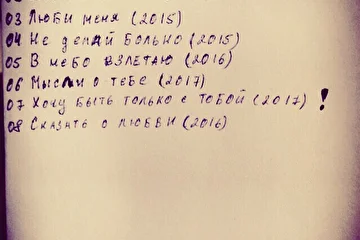 03 Люби меня (2015)
04 Не делай больно (2015)
05 В небо взлетаю (2016)
06 Мысли о тебе (2017)
07 Хочу быть только с тобой (2017) !
08 Сказать о любви (2016)